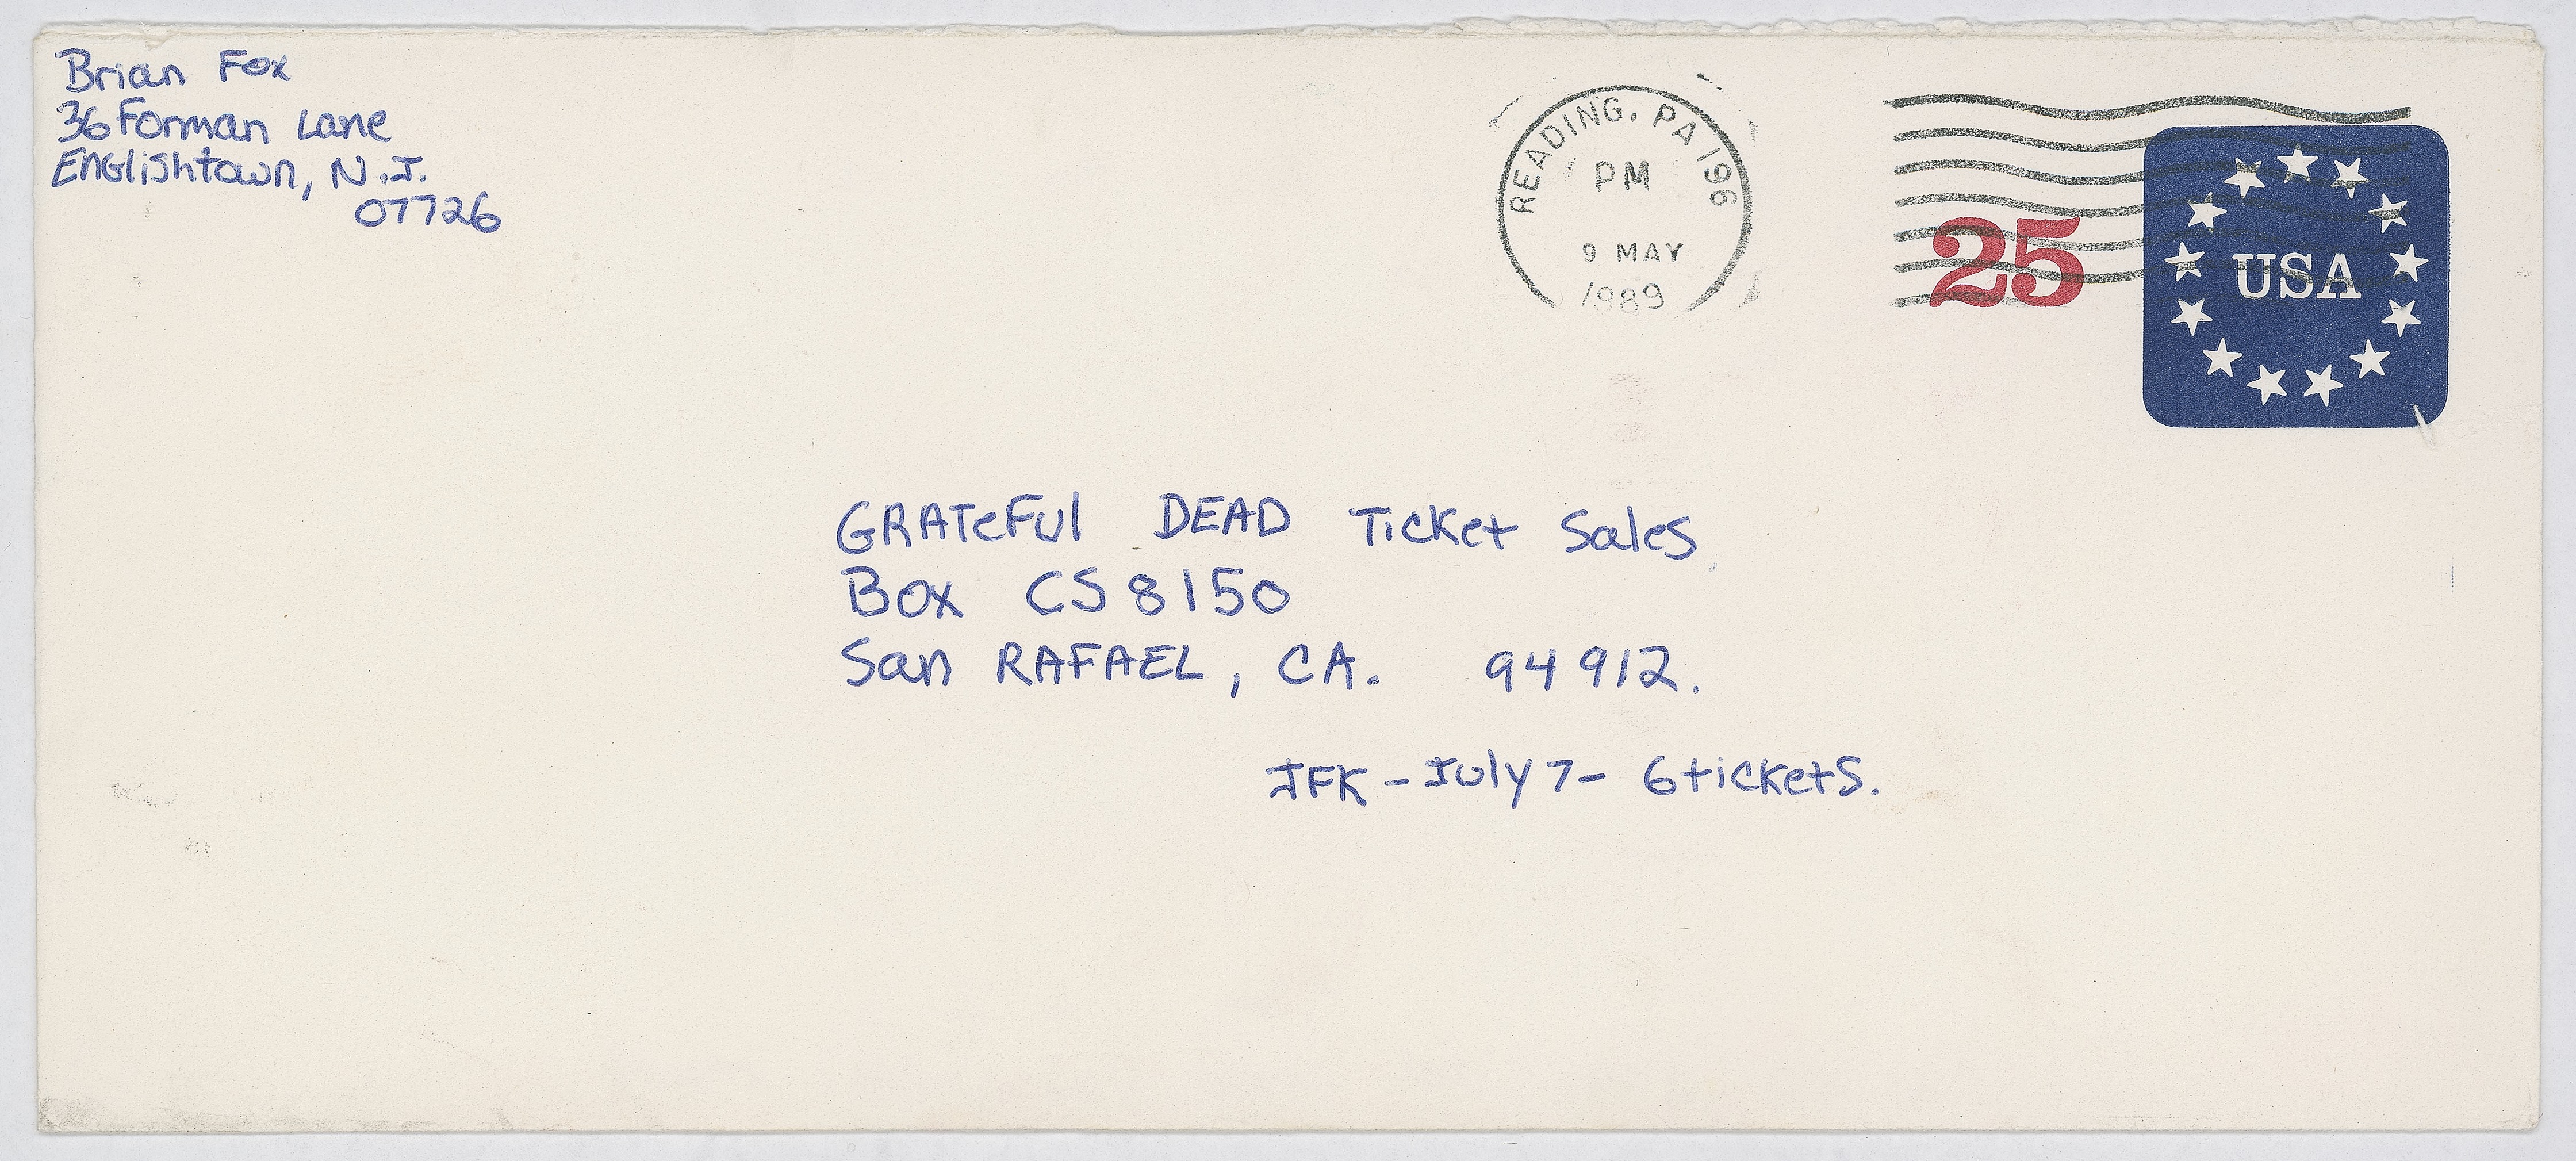 Brian Fox
36 Forman Lane
Englishtown, N.J.
07726
READING, PA 196
PM
9 MAY
1989
25
USA
GRATeFul DEAD Ticket Sales
Box CS 8150
San RAFAEL, CA. 94912.
JFK - July 7 - 6 tickets.